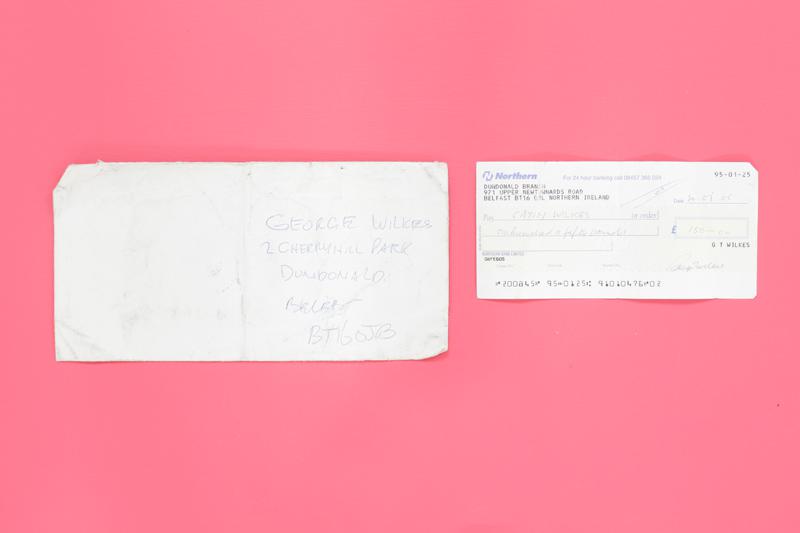 GEORGE WILKES
2 CHERRYHILL PARK
DUNDONALD
BELFAST
BT16 0JB
Northern
For 24 hour banking call 08457 365 024
95-01-25
DUNDONALD BRANCH
971 UPPER NEWTOWNARDS ROAD
BELFAST BT16 NORTHERN IRELAND
Date
Pay CATHY WILKES or order
£ 150-00
G T WILKES
NORTHERN BANK LIMITED
⑈200845⑈ 95⑉0125⑆ 91010476⑈02